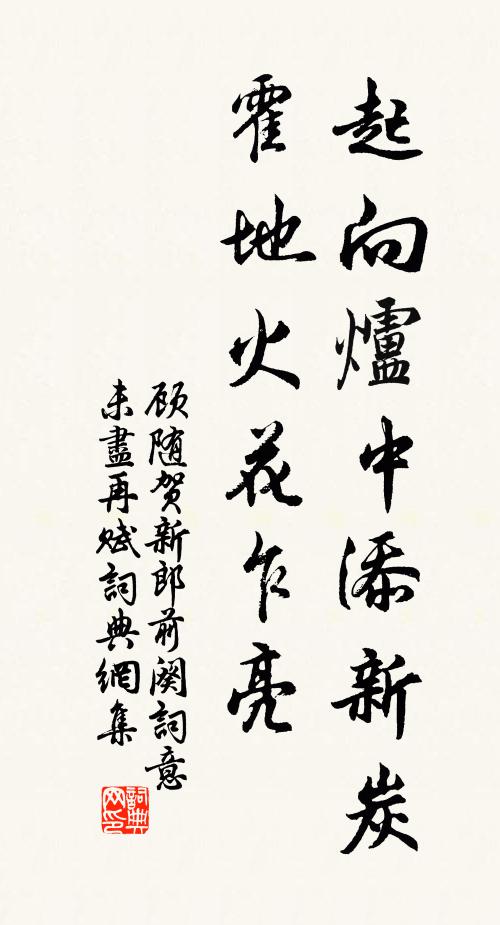 起向爐中添新炭
霍地火花乍亮
顾随贺新郎前阕詞意
未盡再赋詞典網集
詞典网印